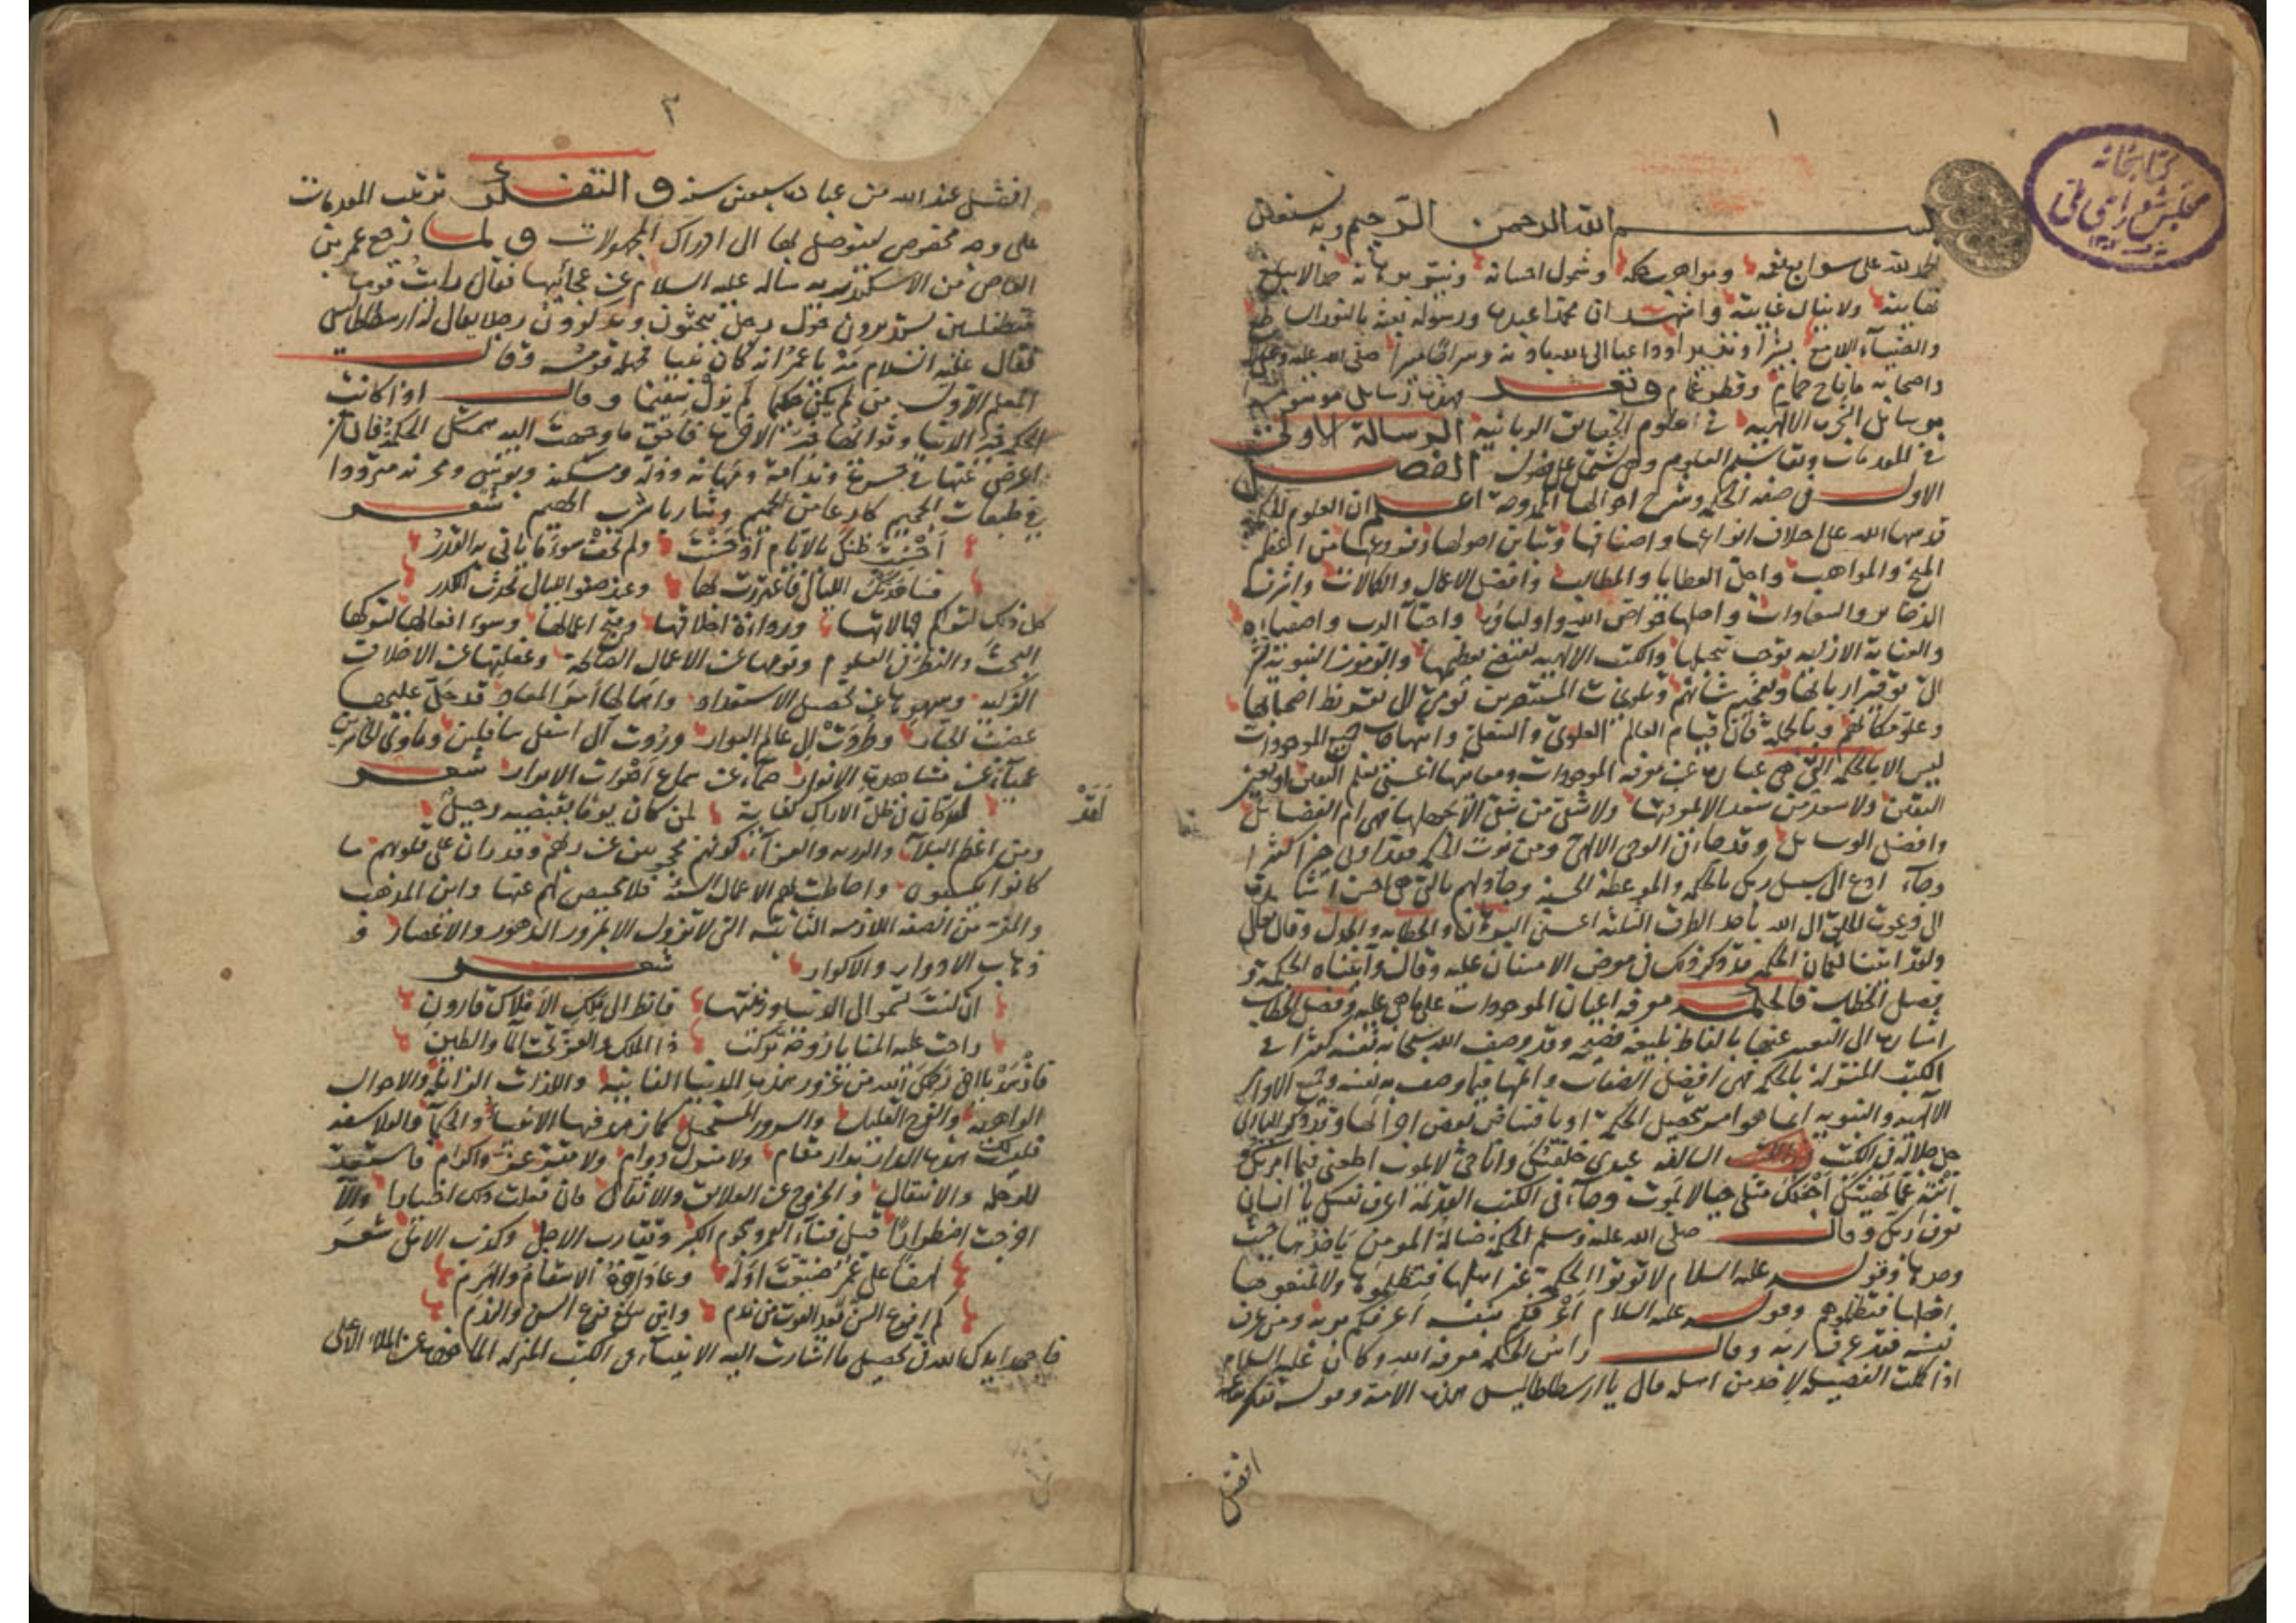 ١
كتابخانه
مجلس شورای ملی
بسم الله الرحمن الرحيم وبه نستعين
الحمد لله على سوابغ نعمه ومواهب حكمه وشمول احسانه حمدا لا يبلغ
نهايته ولا ينال غايته واشهد ان محمدا عبده ورسوله بعثه بالنور الساطع
والضياء اللامع بشيرا ونذيرا وداعيا الى الله باذنه وسراجا منيرا صلى الله عليه وعلى
واصحابه ما ناح حمام وقطر غمام وبعد فهذه رسائل موسومة
برسائل الشجرة الالهيه في علوم الحقايق الربانية الرسالة الاولى
في المقدمات وتقاسيم العلوم وهي تشتمل على فصول الفصل
الاول في صفة الحكمة وشرح احوالها الممدوحة اعلم ان العلوم الحكمية
قدسها الله على اختلاف انواعها واصنافها وتباين اصولها وفروعها من اعظم
المنح والمواهب واجل العطايا والمطالب وافضل الاعمال والكمالات واشرف
الذخاير والسعادات واهلها خواص الله واولياؤه واحبآء الرب واصفياؤه
والعناية الازليه توجب تبجيلها والكتب الالهيه تقتضي تعظيمها والرموز النبوية
وعلو مكانهم وبالجملة فان قيام العالم العلوي والسفلي وانتهاء جميع الموجودات
ليس الا بالحكمة التي هي عبارة عن معرفة الموجودات ومعاينتها اعني بعلم اليقين او بعين
اليقين ولا سعد من سعد الا بمعرفتها ولا شقى من شقى الا بجهلها فهي ام الفضائل
وافضل الوسائل وقد جاء في الوحي الالهي ومن يؤت الحكمة فقد اوتي خيرا كثيرا
وجاء ادع الى سبيل ربك بالحكمة والموعظة الحسنة وجادلهم بالتي هي احسن اشارة
الى دعوت الخلق الى الله باحد الطرق الثلثة اعني البرهان والخطابه والجدل وقال تعالى
ولقد اتينا لقمان الحكمة قد ذكر ذلك في معرض الامتنان عليه وقال وآتيناه الحكمة و
فصل الخطاب فالحكمة معرفة اعيان الموجودات على ما هي عليه وفصل الخطاب
اشارة الى التعبير عنها بالفاظ بليغة فصيحة وقد وصف الله سبحانه نفسه كثيرا في
الكتب المنزلة بالحكمة فهي افضل الصفات واتمها فيما وصف به نفسه وجميع الاوامر
الالهيه والنبويه انما هو امر بتحصيل الحكمة او باقتناص بعض احوالها وقد ذكر الباري
جل جلاله في الكتب السالفه عبدي خلقتك وانا حي لا يموت اطعني فيما امرتك
انته عما نهيتك اجعلك مثلي حيا لا تموت وجاء في الكتب القديمة اعرف نفسك يا انسان
تعرف ربك وقال صلى الله عليه وسلم الحكمة ضالة المومن ياخذها حيث
وجدها وقوله عليه السلام لا توتوا الحكمة غير اهلها فتظلموها ولا تمنعوها
اهلها فتظلموهم وقوله عليه السلام اعرفكم بنفسه اعرفكم بربه ومن عرف
نفسه فقد عرف ربه وقال راس الحكمة معرفة الله وكان عليه السلام
اذا كملت الفضيلة لاحد من اهله قال يا ارسطاطاليس هذه الامة وقوله تفكر ساعة
افضل
٢
افضل عند الله من عبادة سبعين سنة والتفكر ترتيب المقدمات
على وجه مخصوص ليتوصل بها الى ادراك المجهولات ولما رجع عمرو بن
العاص من الاسكندريه ساله عليه السلام عن عجائبها فقال رايت قوما
متطلسين يستديرون حول رجل يبحثون ويذكرون رجلا يقال له ارسطاطاليس
فقال عليه السلام مه يا عمر انه كان نبيا فجهله قومه وقال
المعلم الاول من لم يكن حكيما لم يزل سقيما وقال اذا كانت
اعرض عنها في حسرة وندامة ومهانة وذلة ومسكنة وبؤس ومحنة مترددا
في طبقات الجحيم كارعا من الحميم وشاربا شرب الهيم شعر
احسنت ظنك بالايام اذ حسنت ولم تخف سوء ما ياتي به القدر
وسالمتك الليالي فاغتررت بها وعند صفو الليالي يحدث الكدر
كل ذلك لتراكم جهالاتها ورداءة اخلاقها وقبح اعمالها وسوء افعالها لتركها
البحث والنظر في العلوم ونومها عن الاعمال الصالحة وغفلتها عن الاخلاق
الزكية وسهوها عن تحصيل الاستعداد واهمالها امر المعاد قد حل عليها
غضب الجبار وطردت الى عالم البوار وردت الى اسفل سافلين وماوى الخاسرين
عمياء عن مشاهدة الانوار صماء عن سماع اصوات الابرار شعر
لقد
لقد كان في ظل الاراك كفاية لمن كان يوما يقتضيه رحيل
ومن اعظم البلاء والرزيه والعزاء كونهم محجوبين عن ربهم وقد ران على قلوبهم ما
كانوا يكسبون واحاطت بهم الاعمال السيئة فلا محيص لهم عنها واين المذهب
والمفر من الصفة اللازمه الثابتة التي لا تزول الا بمرور الدهور والاعصار و
ذهاب الادوار والاكوار شعر
ان كنت تسمو الى الدنيا وزينتها فانظر الى ملك الاملاك قارون
راحت عليه المنايا روحة تركت ذا الملك والعز تحت الما والطين
فازهد يا اخي رحمك الله من غرور هذه الدنيا الفانية واللذات الزايلة والاحوال
الواهية والفرح القليل والسرور المستحيل كما زهد فيها الانبياء والحكماء والفلاسفة
فليست هذه الدار بدار مقام ولا منزل دوام ولا مقر عز واكرام فاستعد
للرحلة والانتقال والخروج عن العلايق والاثقال فان فعلت ذلك اختيارا والا
اخرجت اضطرارا قبل فناء العمر وهجوم الكبر وتقارب الاجل وكذب الامل شعر
لهفا على عمر ضيعت اوله وغال آخره الاسقام والهرم
كم اقرع السن بعد الفوت من ندم واين يبلغ قرع السن والندم
فاجهد ايدك الله في تحصيل ما اشارت اليه الانبياء في الكتب المنزلة الماخوذة عن الملاء الاعلى